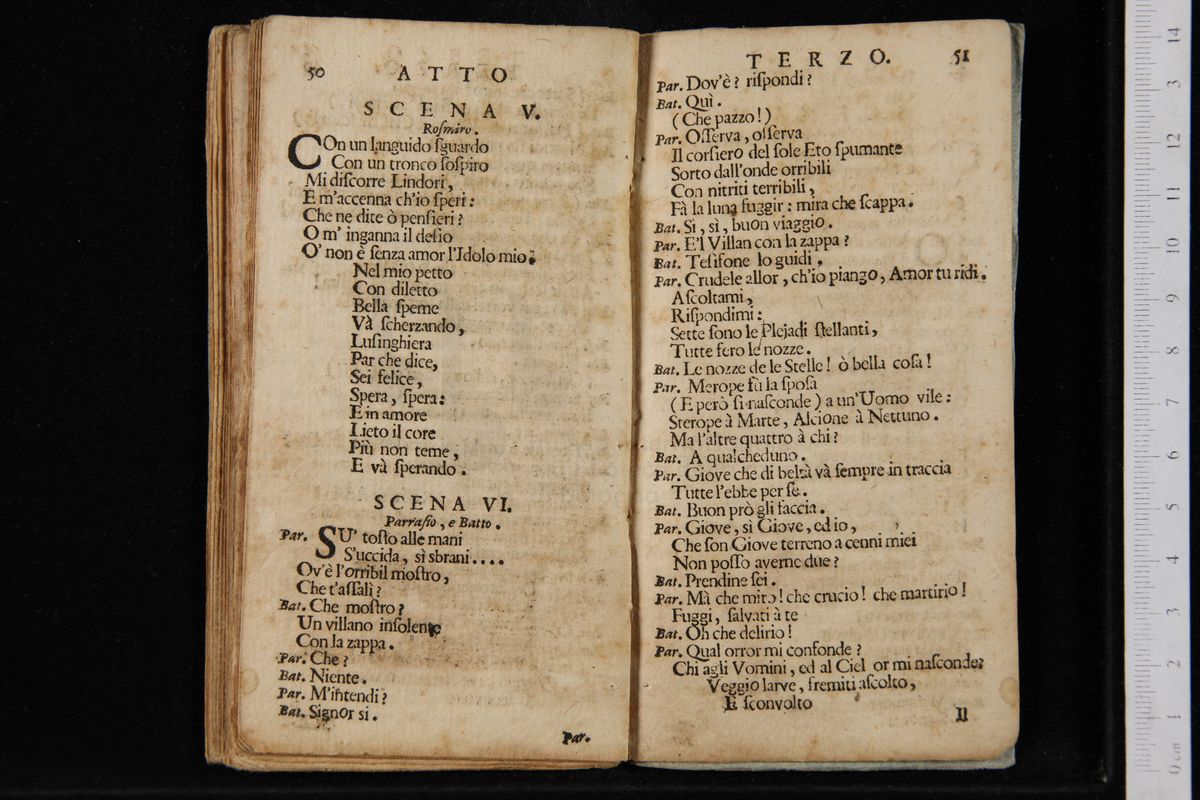 50 ATTO
SCENA V.
Roſmiro.
COn un languido ſguardo
Con un tronco ſoſpiro
Mi diſcorre Lindori,
E m'accenna ch'io ſperi:
Che ne dite ò penſieri?
O m' inganna il deſio
O' non è ſenza amor l'Idolo mio;
Nel mio petto
Con diletto
Bella ſpeme
Và ſcherzando,
Luſinghiera
Par che dice,
Sei felice,
Spera, ſpera:
E in amore
Lieto il core
Più non teme,
E và ſperando.
SCENA VI.
Parraſio, e Batto.
Par. SU' toſto alle mani
S'uccida, sì sbrani....
Ov'è l'orribil moſtro,
Che t'aſſalì?
Bat. Che moſtro?
Un villano inſolente
Con la zappa.
Par. Che?
Bat. Niente.
Par. M'intendi?
Bat. Signor si.
Par.
TERZO. 51
Par. Dov'è? riſpondi?
Bat. Quì.
(Che pazzo!)
Par. Oſſerva, oſſerva
Il corſiero del ſole Eto ſpumante
Sorto dall'onde orribili
Con nitriti terribili,
Fà la luna fuggir: mira che ſcappa.
Bat. Sì, sì, buon viaggio.
Par. E'l Villan con la zappa?
Bat. Teſifone lo guidi.
Par. Crudele allor, ch'io piango, Amor tu ridi.
Aſcoltami,
Riſpondimi:
Sette ſono le Plejadi ſtellanti,
Tutte fero le nozze.
Bat. Le nozze de le Stelle! ò bella coſa!
Par. Merope fù la ſpoſa
(E però ſi naſconde) a un'Uomo vile:
Sterope à Marte, Alcione à Nettuno.
Ma l'altre quattro à chi?
Bat. A qualcheduno.
Par. Giove che di beltà và ſempre in traccia
Tutte l'ebbe per ſe.
Bat. Buon prò gli faccia.
Par. Giove, sì Giove, ed io,
Che ſon Giove terreno a cenni miei
Non poſſo averne due?
Bat. Prendine ſei.
Par. Mà che miro! che crucio! che martirio!
Fuggi, ſalvati à te
Bat. Oh che delirio!
Par. Qual orror mi confonde?
Chi agli Vomini, ed al Ciel or mi naſconde?
Veggio larve, fremiti aſcolto,
E ſconvolto
Il
14
13
12
11
10
9
8
7
6
5
4
3
2
1
0 cm